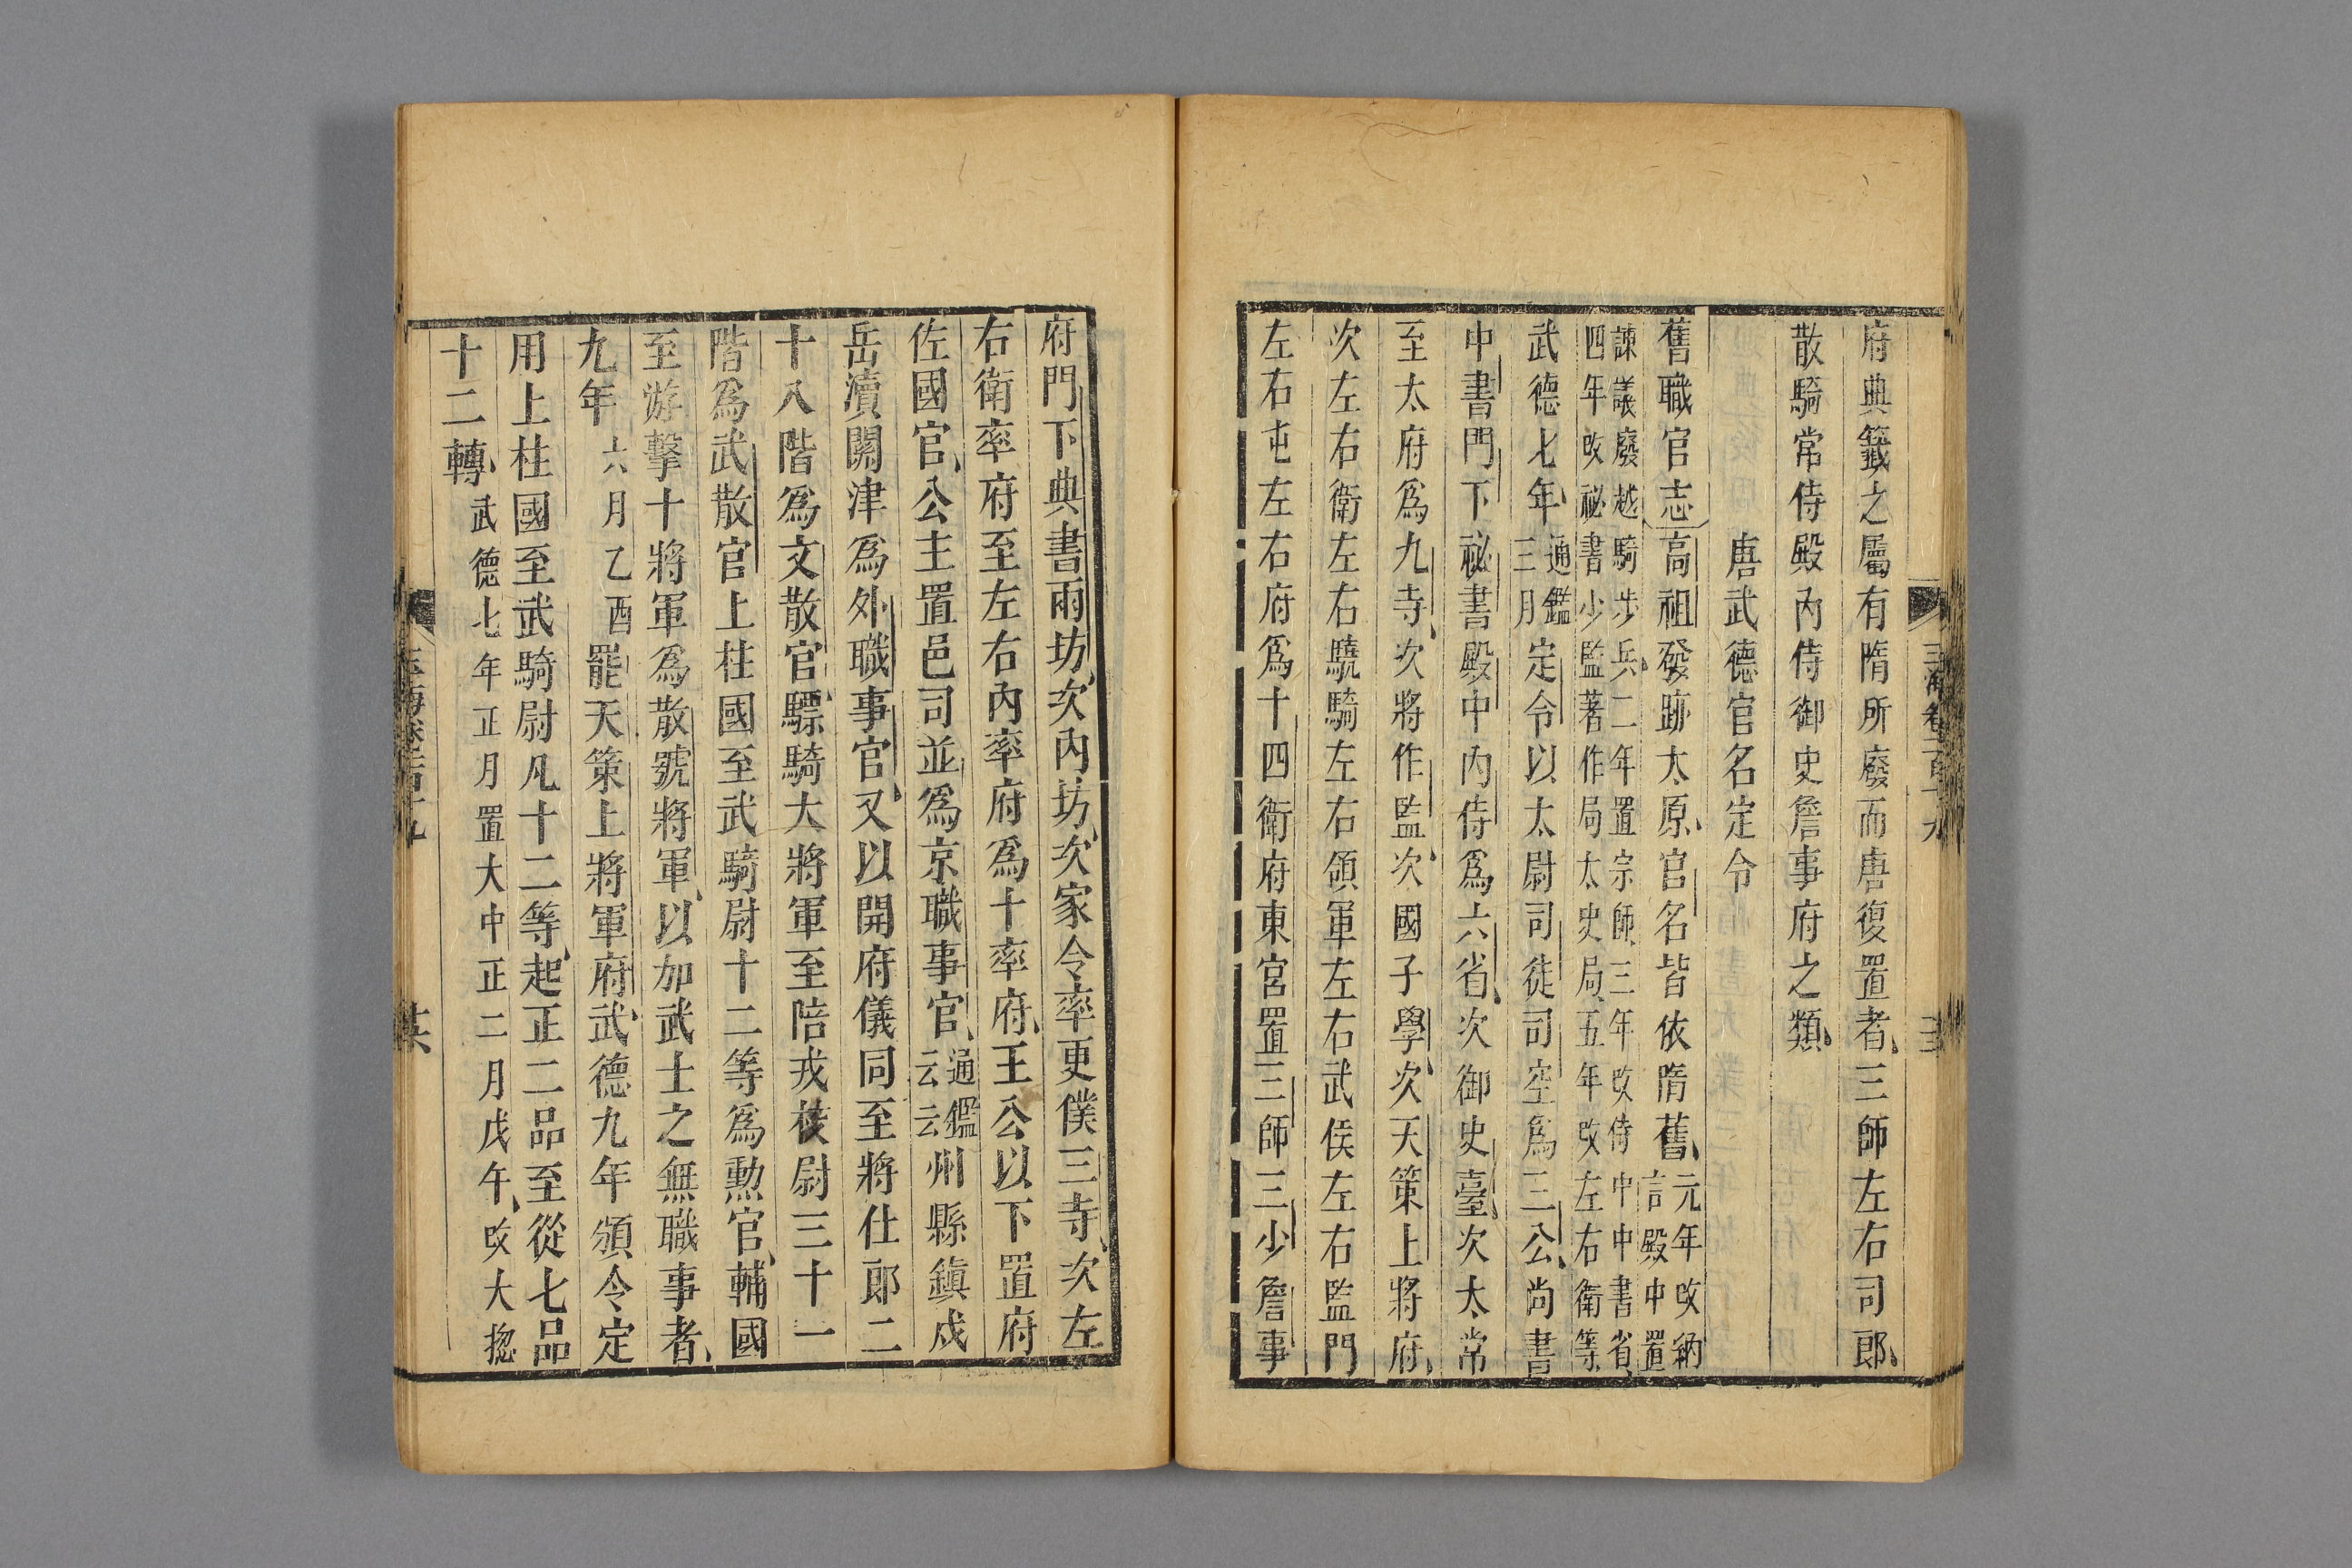 府典籤之屬有隋所廢而唐復置者三師左右司郎
散騎常侍殿內侍御史詹事府之類
唐武德官名定令
舊職官志高祖發跡太原官名皆依隋舊元年改納言殿中置
諫議廢越騎步兵二年置宗師三年改侍中中書省
四年改祕書少監著作局太史局五年改左右衛等
武德七年通鑑三月定令以太尉司徒司空爲三公尚書
中書門下祕書殿中內侍爲六省次御史臺次太常
至太府爲九寺次將作監次國子學次天策上將府
次左右衛左右驍騎左右領軍左右武侯左右監門
左右屯左右府爲十四衛府東宮置三師三少詹事
府門下典書兩坊次內坊次家令率更僕三寺次左
右衛率府至左右內率府爲十率府王公以下置府
佐國官公主置邑司並爲京職事官通鑑云云州縣鎮戍
岳瀆關津爲外職事官又以開府儀同至將仕郎二
十八階爲文散官驃騎大將軍至陪戎校尉三十一
階爲武散官上柱國至武騎尉十二等爲勲官輔國
至游擊十將軍爲散號將軍以加武士之無職事者
九年六月乙酉罷天策上將軍府武德九年頒令定
用上柱國至武騎尉凡十二等起正二品至從七品
十二轉武德七年正月置大中正二月戊午改大揔